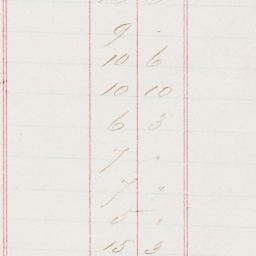 9 -
10 6
10 10
6 3
7 "
7 "
5 "
15 3